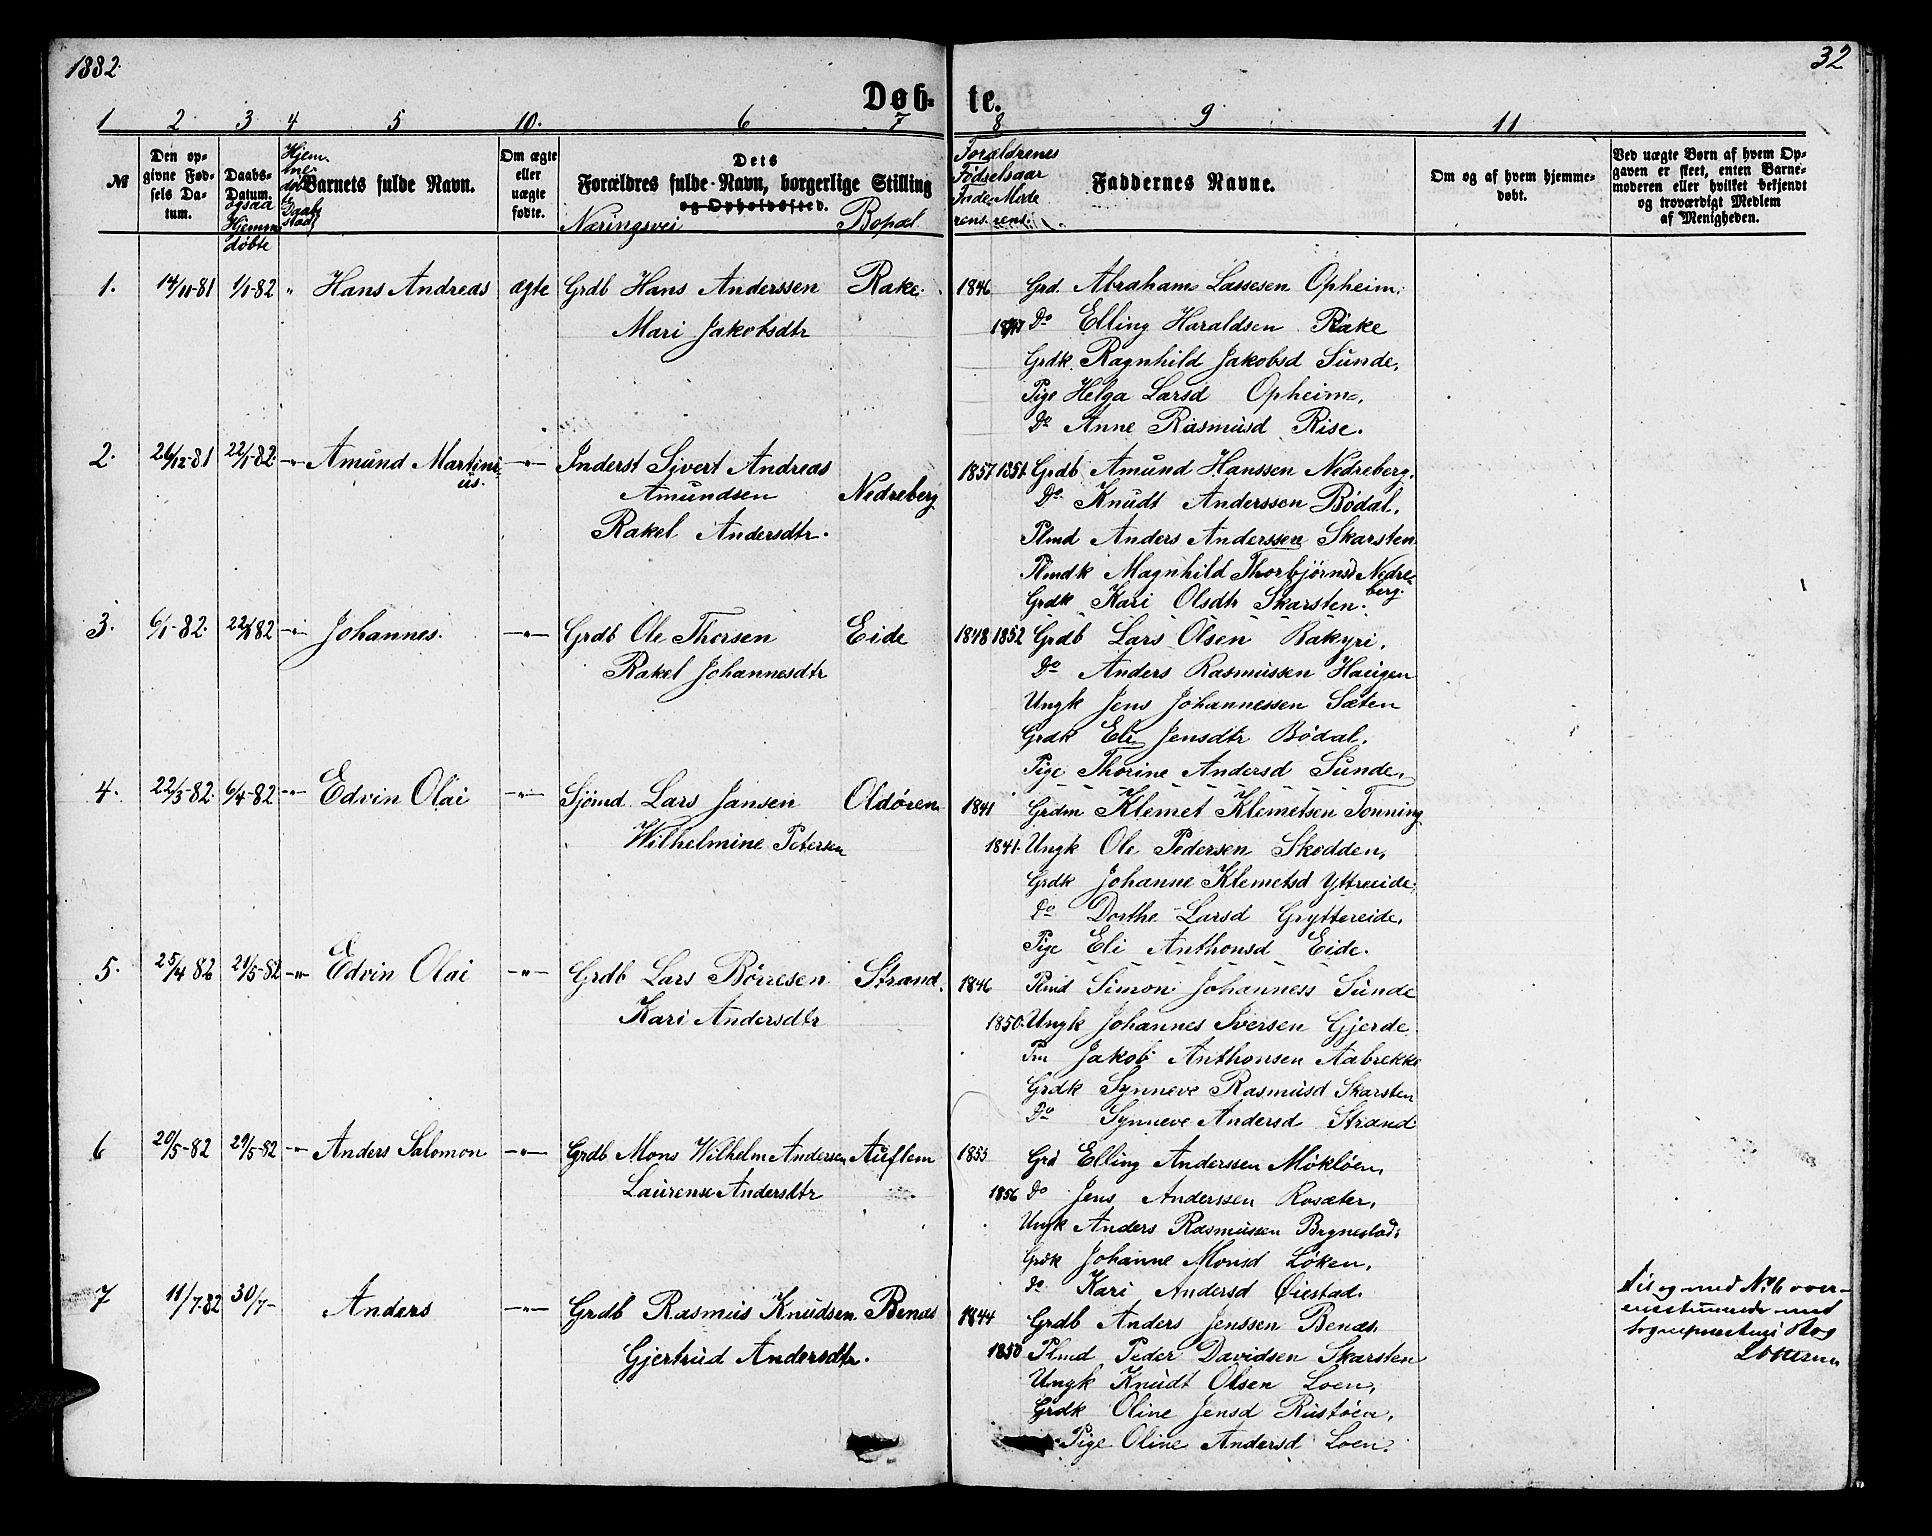 1882. 32
Døb- te.
1 2 3 4 5 10. 6 7 8 9 11
№
Den op-
givne Fød-
sels Da-
tum.
Daabs-
Datum.
ogsaa
Hjemme
døbte
Hjem-
me
døbte
Daabs
stad
Barnets fulde Navn.
Om ægte
eller
uægte
fødte.
Dets
Forældres fulde Navn, borgerlige Stilling
og Opholdssted.
Næringsvei Bopæl
Forældrenes
Fødselsaar
Faderens. Moderens.
Faddernes Navne.
Om og af hvem hjemme-
døbt.
Ved uægte Børn af hvem Op-
gaven er skeet, enten Barne-
moderen eller hvilket bekjendt
og troværdigt Medlem
af Menigheden.
1. 14/11-81 1/1-82 " Hans Andreas ægte Grdb Hans Anderssen Rake. 1846 Grd. Abraham Lassesen Opheim.
Mari Jakobsdtr Do Elling Haraldsen Rake
Grdk. Ragnhild Jakobsd Sunde,
Pige Helga Larsd Opheim,
Do Anne Rasmusd Rise.
2. 26/12-81 22/1-82. -"- Amund Martini- -"- Inderst Sivert Andreas 1857 1851 Grdb Amund Hanssen Nedreberg.
us. Amundsen Nedreberg Do Knudt Anderssen Bødal,
Rakel Andersdtr. Plmd Anders Anderssen Skarsten
Plmdk Magnhild Thorbjørnsd Nedre-
berg.
Grdk Kari Olsdtr Skarsten.
3. 6/1-82. 22/1 82 -"- Johannes. -"- Grdb Ole Thorsen Eide 1848 1852 Grdb Lars Olsen Bakyri,
Rakel Johannesdtr Do Anders Rasmussen Haugen
Ungk Jens Johannessen Sæten
Grdk Eli Jensdtr Bødal.
Pige Thorine Andersd Sunde,
4. 22/3-82. 6/4-82 -"- Edvin Olai -"- Sjømd. Lars Jansen Oldøren 1841 Grdm Klemet Klemetsen Tonning
Wilhelmine Petersen 1841. Ungk Ole Pedersen Skodden,
Grdk Johanne Klemetsd Yttreeide,
Do Dorthe Larsd Gryttereide,
Pige Eli Anthonsd Eide.
5. 25/4 82 21/5-82 -"- Edvin Olai -"- Grdb Lars Børresen Strand. 1846 Plmd Simon Johanness Sunde
Kari Andersdtr 1850. Ungk Johannes Iversen Gjerde
Pm Jakob Anthonsen Aabrekke
Grdk Synneve Rasmusd Skarsten
Do Synneve Andersd Strand
6 20/5-82 29/5-82 -"- Anders Salomon -"- Grdb Mons Wilhelm Andersen Auflem 1855 Grd Elling Anderssen Møkløen,
Laurense Andersdtr 1856 Do Jens Anderssen Rosæter,
Ungk Anders Rasmussen Brynestad,
Grdk Johanne Monsd Løken,
Do Kari Andersd Øiestad.
7 11/7.82 30/7- Anders -"- Grdb Rasmus Knudsen Benæs 1844 Grdb Anders Jenssen Benæs.
Gjertrud Andersdtr. 1850 Plmd Peder Davidsen Skarsten
Ungk Knudt Olsen Loen,
Grdk Oline Jensd Rustøen,
Pige Oline Andersd Loen.
Til og med No 6 over-
ensstemmende med
Sogneprestens Bog